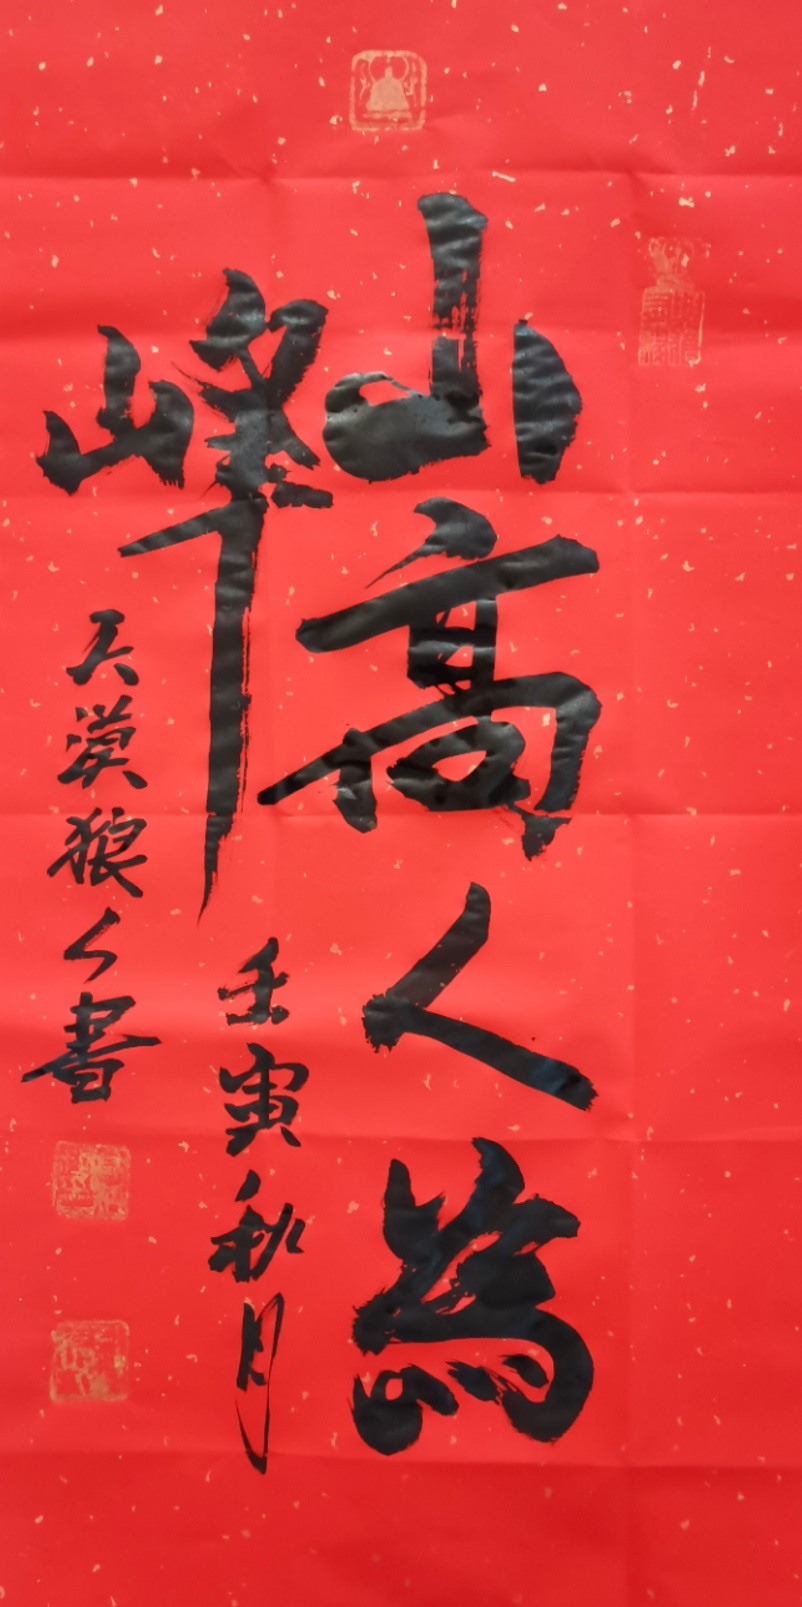 山高人為
峰
壬寅秋月
天漠狼人書